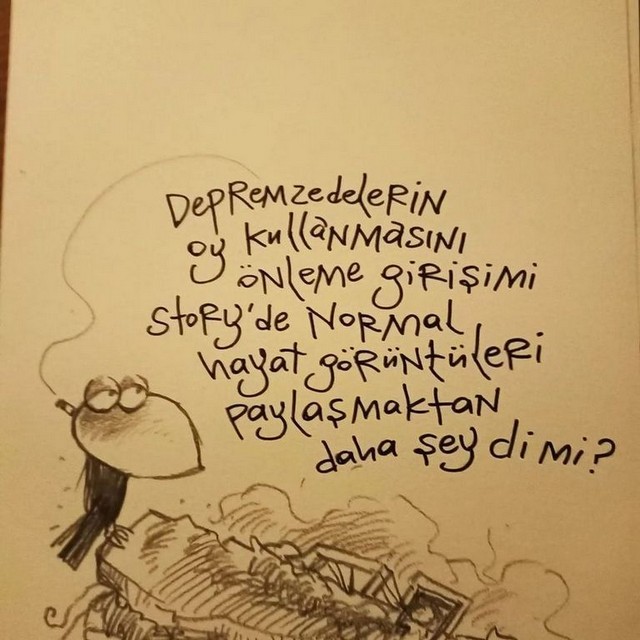 DepREMzedeleRiN
oy kullaNMasıNı
öNleMe giRişiMi
stoRy'de NoRMal
hayat göRüNtüleRi
paylaşMaktaN
daha şey di Mi?